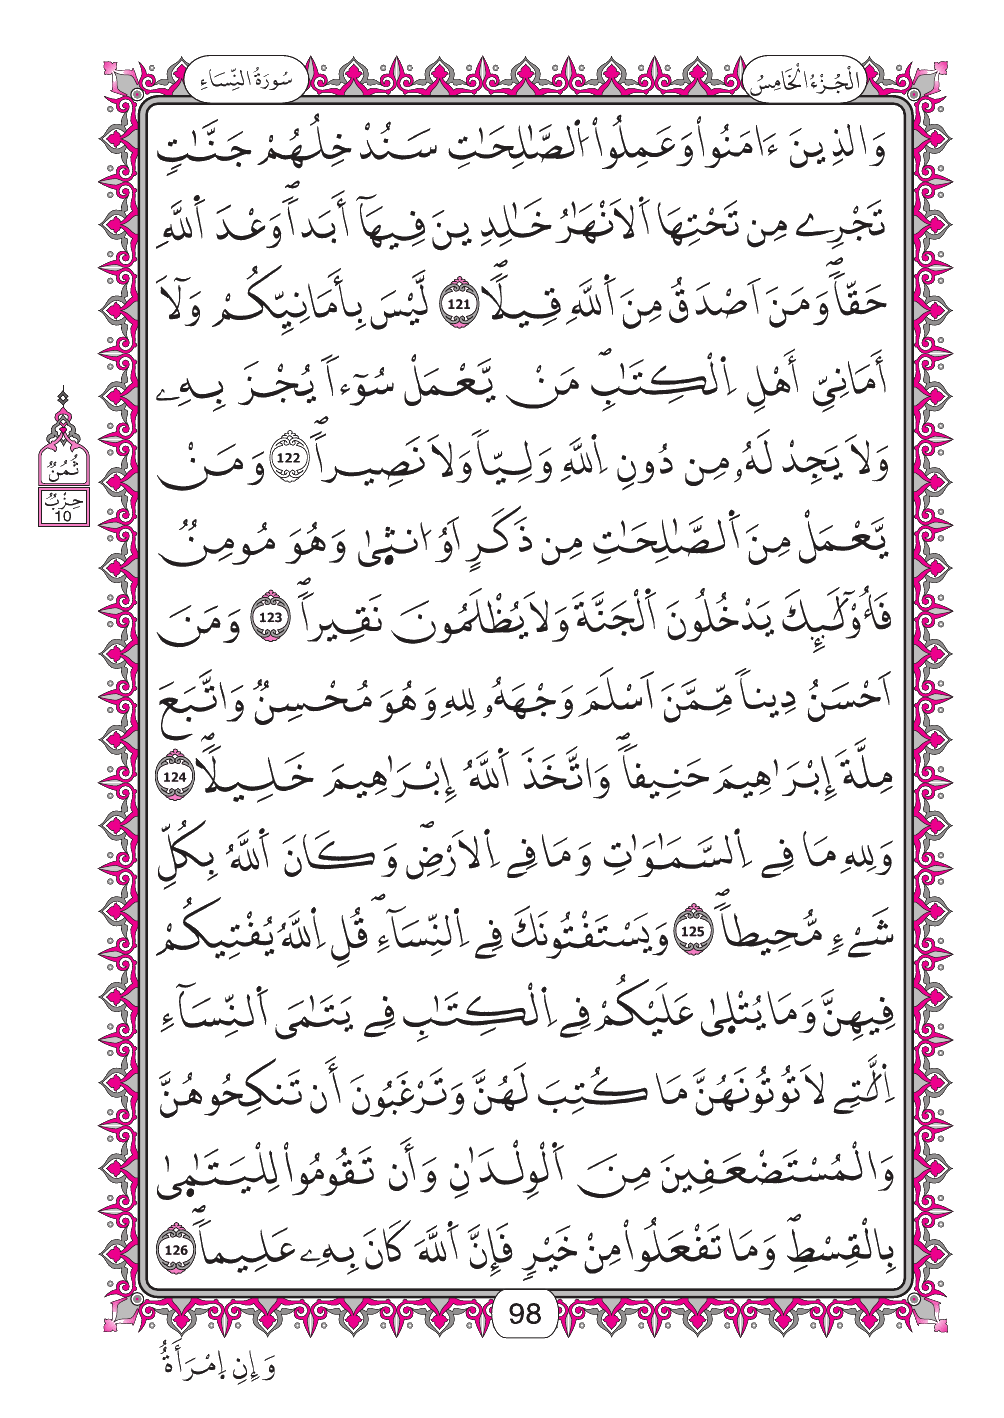 الْجُزْءُ الْخَامِسُ
سُورَةُ النِّسَاءِ
وَالذِينَ ءَامَنُواْ وَعَمِلُواْ اُ۬لصَّٰلِحَٰتِ سَنُدْخِلُهُمْ جَنَّٰتٖ
تَجْرِے مِن تَحْتِهَا اَ۬لَانْهَٰرُ خَٰلِدِينَ فِيهَآ أَبَداٗۖ وَعْدَ اَ۬للَّهِ
حَقّاٗۖ وَمَنَ اَصْدَقُ مِنَ اَ۬للَّهِ قِيلاٗۖ 121 لَّيْسَ بِأَمَانِيِّكُمْ وَلَآ
أَمَانِيِّ أَهْلِ اِ۬لْكِتَٰبِۖ مَنْ يَّعْمَلْ سُوٓءاٗ يُجْزَ بِهِۦ
وَلَا يَجِدْ لَهُۥ مِن دُونِ اِ۬للَّهِ وَلِيّاٗ وَلَا نَصِيراٗۖ 122 وَمَنْ
يَّعْمَلْ مِنَ اَ۬لصَّٰلِحَٰتِ مِن ذَكَرٍ اَوُ ا۟نث۪يٰ وَهُوَ مُومِنٞ
فَأُوْلَٰٓئِكَ يَدْخُلُونَ اَ۬لْجَنَّةَ وَلَا يُظْلَمُونَ نَقِيراٗۖ 123 وَمَنَ
اَحْسَنُ دِيناٗ مِّمَّنَ اَسْلَمَ وَجْهَهُۥ لِلهِ وَهُوَ مُحْسِنٞ وَاتَّبَعَ
مِلَّةَ إِبْرَٰهِيمَ حَنِيفاٗۖ وَاتَّخَذَ اَ۬للَّهُ إِبْرَٰهِيمَ خَلِيلاٗۖ 124
وَلِلهِ مَا فِے اِ۬لسَّمَٰوَٰتِ وَمَا فِے اِ۬لَارْضِۖ وَكَانَ اَ۬للَّهُ بِكُلِّ
شَےْءٖ مُّحِيطاٗۖ 125 وَيَسْتَفْتُونَكَ فِے اِ۬لنِّسَآءِۖ قُلِ اِ۬للَّهُ يُفْتِيكُمْ
فِيهِنَّ وَمَا يُتْل۪يٰ عَلَيْكُمْ فِے اِ۬لْكِتَٰبِ فِے يَتَٰمَي اَ۬لنِّسَآءِ
اِ۬لَّٰتِے لَا تُوتُونَهُنَّ مَا كُتِبَ لَهُنَّ وَتَرْغَبُونَ أَن تَنكِحُوهُنَّ
وَالْمُسْتَضْعَفِينَ مِنَ اَ۬لْوِلْدَٰنِ وَأَن تَقُومُواْ لِلْيَتَٰم۪يٰ
بِالْقِسْطِۖ وَمَا تَفْعَلُواْ مِنْ خَيْرٖ فَإِنَّ اَ۬للَّهَ كَانَ بِهِۦ عَلِيماٗۖ 126
ثُمُنٌ
حِزْبٌ
10
98
وَإِنِ اِ۪مْرَأَةٌ